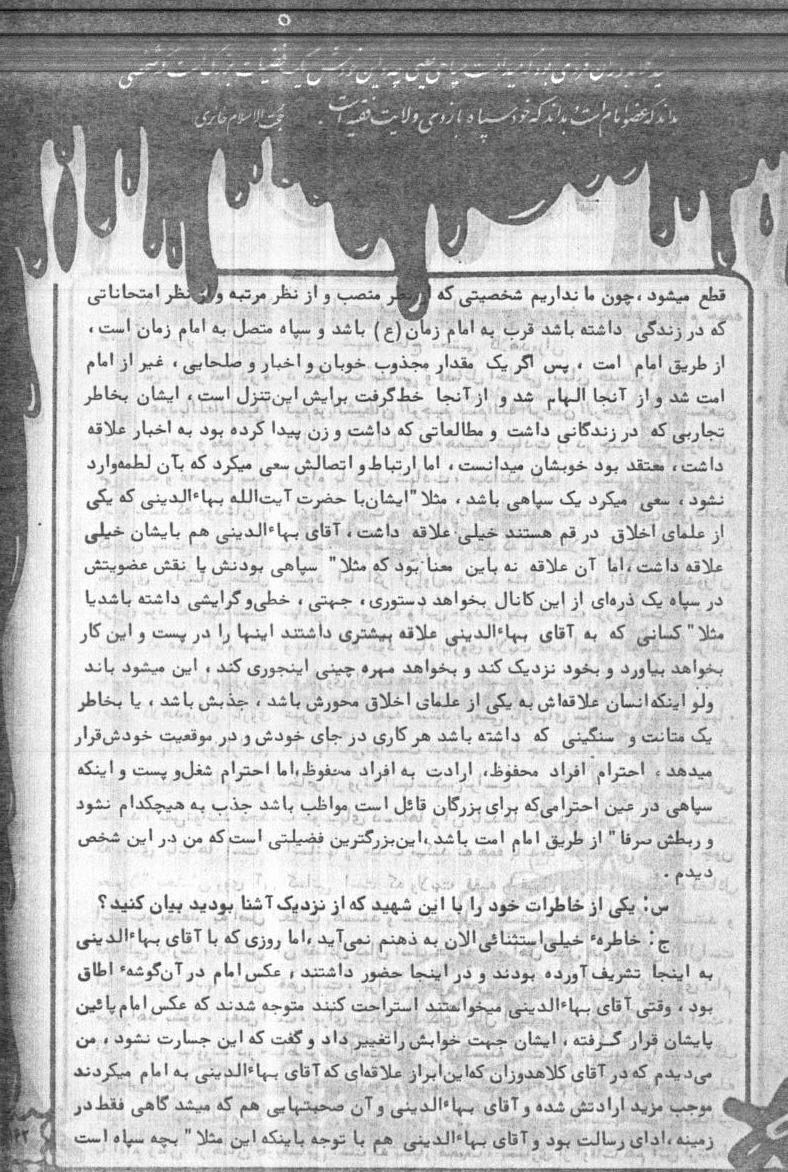 بداند که عضو امام است بداند که خود سپاه بازوی ولایت فقیه است. حجة الاسلام حائری
قطع میشود ،چون ما نداریم شخصیتی که از نظر منصب و از نظر مرتبه و از نظر امتحاناتی
که در زندگی داشته باشد قرب به امام زمان(ع) باشد و سپاه متصل به امام زمان است ،
از طریق امام امت ، پس اگر یک مقدار مجذوب خوبان و اخبار و صلحایی ، غیر از امام
امت شد و از آنجا الهام شد و از آنجا خط گرفت برایش این تنزل است ، ایشان بخاطر
تجاربی که در زندگانی داشت و مطالعاتی که داشت و زن پیدا کرده بود به اخبار علاقه
داشت ، معتقد بود خوبشان میدانست ، اما ارتباط و اتصالش سعی میکرد که بآن لطمه‌وارد
نشود ، سعی میکرد یک سپاهی باشد ، مثلا" ایشان‌با حضرت آیت‌الله بهاءالدینی که یکی
از علمای اخلاق در قم هستند خیلی علاقه داشت ، آقای بهاءالدینی هم بایشان خیلی
علاقه داشت ،اما آن علاقه نه باین معنا بود که مثلا" سپاهی بودنش یا نقش عضویتش
در سپاه یک ذره‌ای از این کانال بخواهد دستوری ، جهتی ، خطی‌و گرایشی داشته باشدیا
مثلا" کسانی که به آقای بهاءالدینی علاقه بیشتری داشتند اینها را در پست و این کار
بخواهد بیاورد و بخود نزدیک کند و بخواهد مهره چینی اینجوری کند ، این میشود باند
ولو اینکه‌انسان علاقه‌اش به یکی از علمای اخلاق محورش باشد ، جذبش باشد ، یا بخاطر
یک متانت و سنگینی که داشته باشد هر کاری در جای خودش و در موقعیت خودش‌قرار
میدهد ، احترام افراد محفوظ، ارادت به افراد محفوظ،اما احترام شغل‌و پست و اینکه
سپاهی در عین احترامی‌که برای بزرگان قائل است مواظب باشد جذب به هیچکدام نشود
و ربطش صرفا" از طریق امام امت باشد ،این‌بزرگترین فضیلتی است که من در این شخص
دیدم .
س: یکی از خاطرات خود را با این شهید که از نزدیک آشنا بودید بیان کنید؟
ج: خاطرهء خیلی‌استثنائی‌الان به ذهنم نمی‌آید ،اما روزی که با آقای بهاءالدینی
به اینجا تشریف آورده بودند و در اینجا حضور داشتند ، عکس امام در آن‌گوشهء اطاق
بود ، وقتی آقای بهاءالدینی میخواستند استراحت کنند متوجه شدند که عکس امام پائین
پایشان قرار گـرفته ، ایشان جهت خوابش را تغییر داد و گفت که این جسارت نشود ، من
می‌دیدم که در آقای کلاهدوزان که‌این‌ابراز علاقه‌ای که آقای بهاءالدینی به امام میکردند
موجب مزید ارادتش شده و آقای بهاءالدینی و آن صحبتهایی هم که میشد گاهی فقط در
زمینه ،ادای رسالت بود و آقای بهاءالدینی هم با توجه باینکه این مثلا" بچه سپاه است